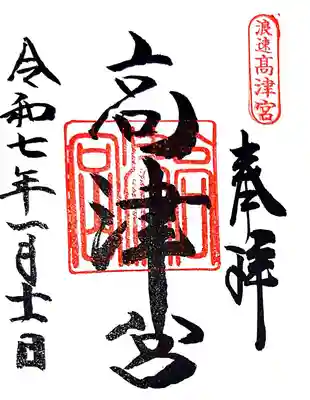 浪速高津宮
奉拝
高津宮
令和七年一月十一日